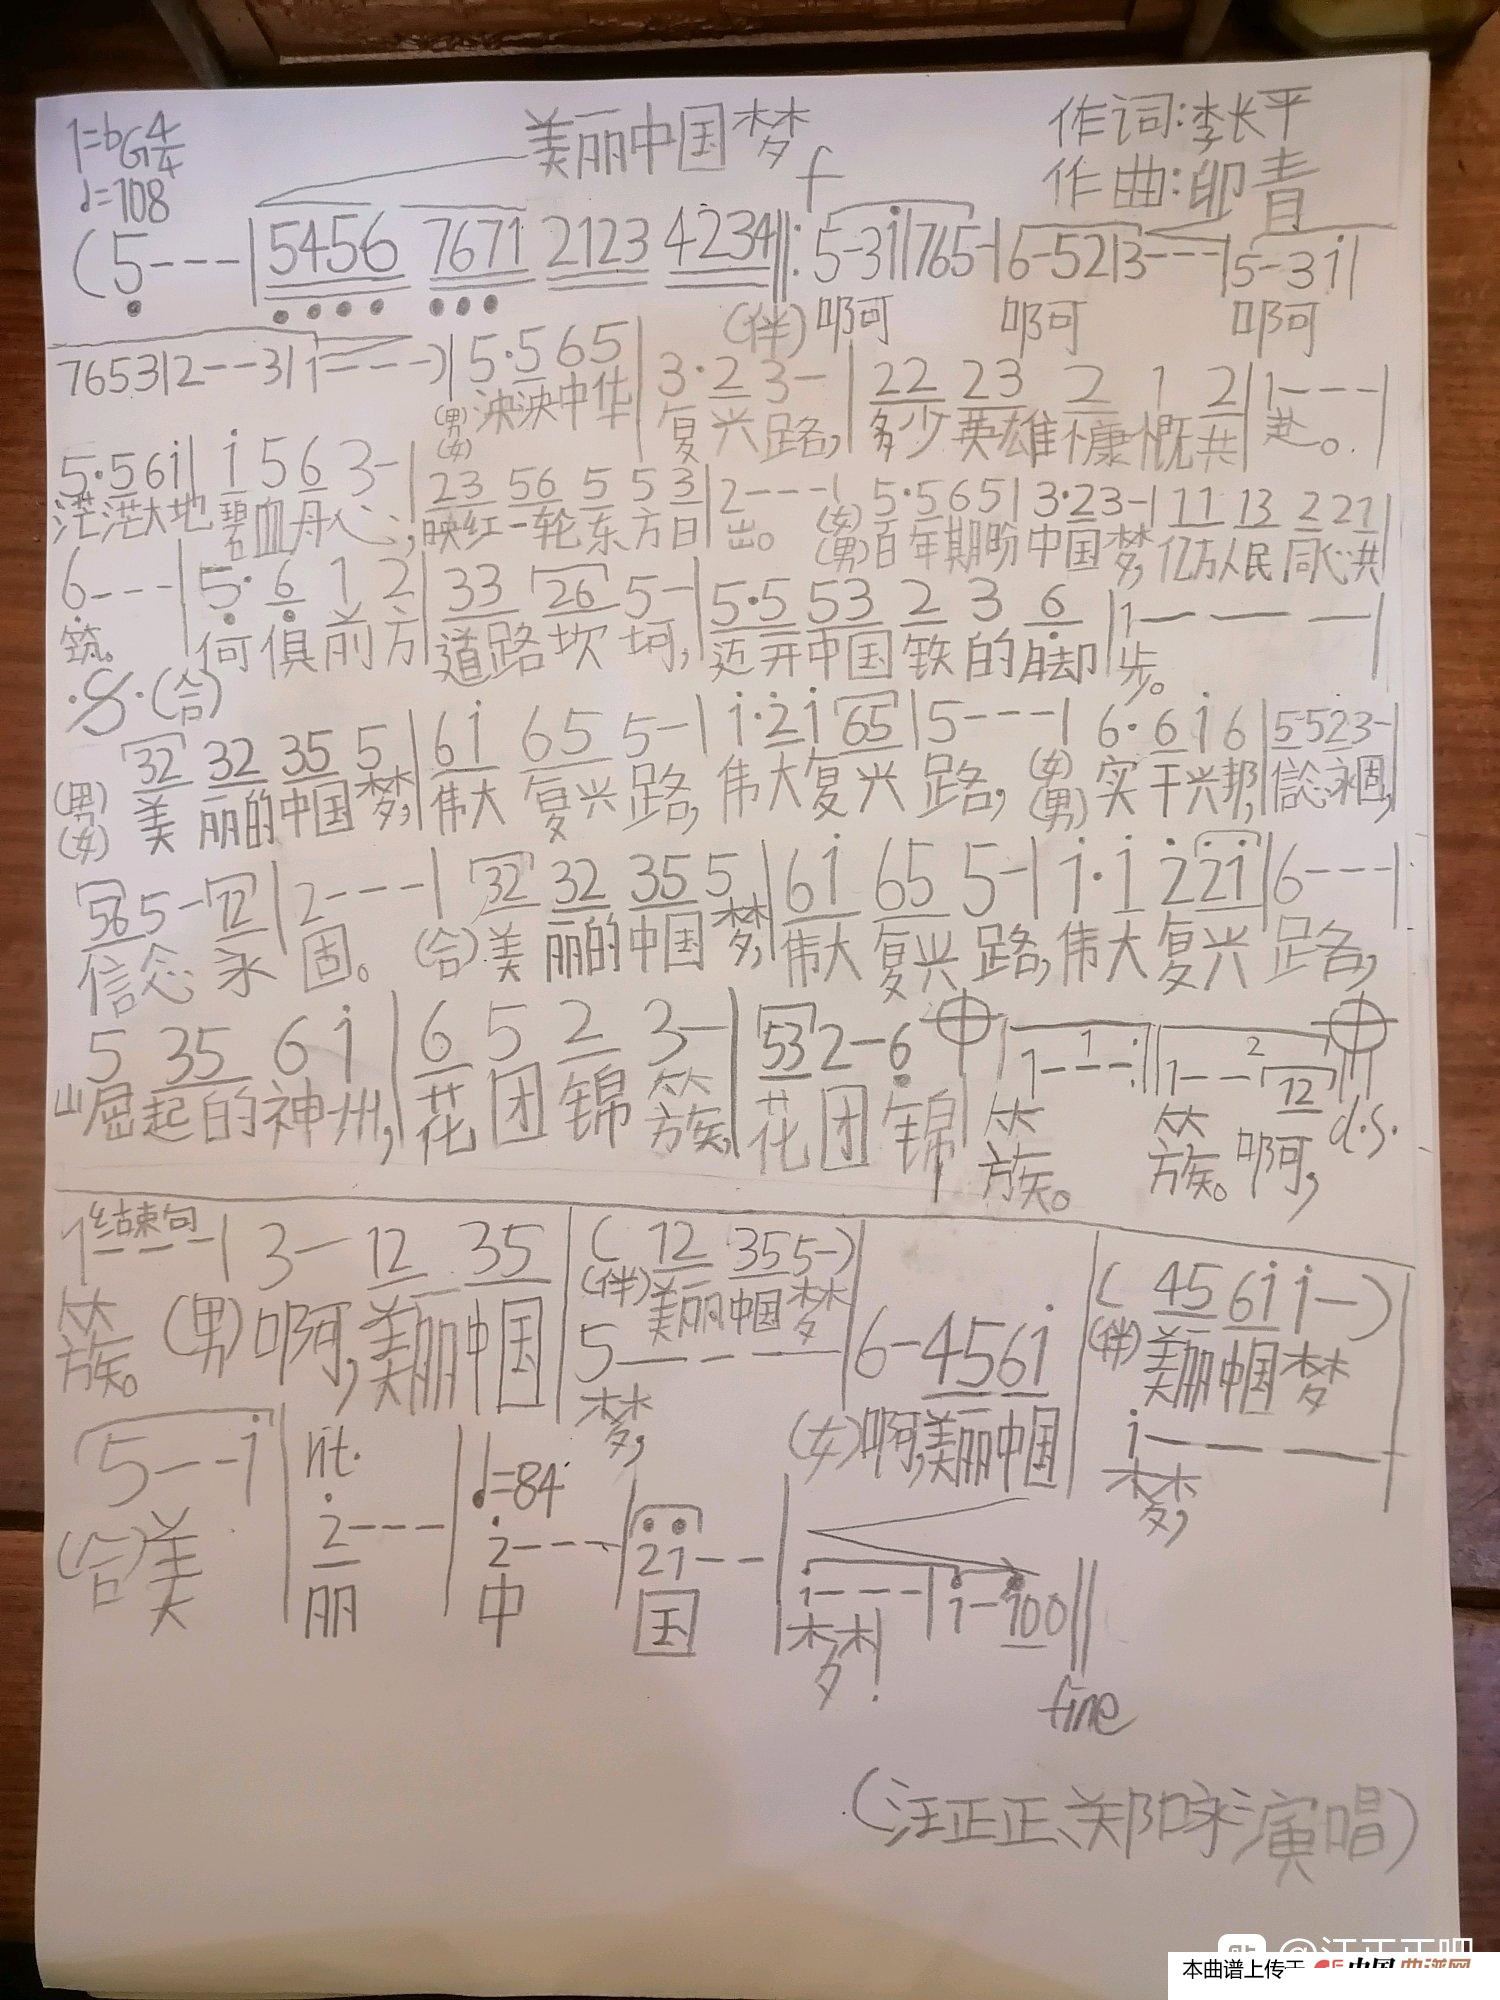 1=bG4/4 美丽中国梦 作词:李长平
♩=108 f 作曲:印青
(5---|5456 7671 2123 4234‖:5-3i|765-|6-52|3---|5-3i|
(伴)啊 啊 啊
7653|2--3|1---)|5·5 65|3·2 3-|22 23 2 1 2|1---|
(男)(女)泱泱中华 复兴路,多少英雄慷慨共赴。
5·5 6i|i 5 6 3-|23 56 5 5 3|2---|5·5 65|3·2 3-|11 13 2 21|
茫茫大地 碧血丹心,映红一轮东方日出。(女)(男)百年期盼中国梦,亿万人民同心共
6---|5·6 1 2|33 26 5-|5·5 53 2 3 6|1---|
筑。何俱前方道路坎坷,迈开中国铁的脚步。
·S·(合)
32 32 35 5|6i 65 5-|i·2 i 65|5---|6·6 i 6|5·5 2 3-|
(男)(女)美丽的中国梦,伟大复兴路,伟大复兴路,(女)(男)实干兴邦,信念永固,
56 5-12|2---|32 32 35 5|6i 65 5-|i·i 2 2i|6---|
信念永固。(合)美丽的中国梦,伟大复兴路,伟大复兴路,
5 35 6 i|6 5 2 3-|53 2-6|1---:|1--12‖
崛起的神州,花团锦簇,花团锦簇。簇。啊, d.s.
结束句
1---|3-12 35|(12 35 5-)|6-45 6i|(45 6i i-)|
(伴)美丽中国梦 (伴)美丽中国梦
5--- i---
簇。(男)啊,美丽中国梦, (女)啊,美丽中国梦,
5--i|rit. 2---|♩=84 2---|2i--|i---|i-i00‖
(合)美丽中国梦!
fine
(汪正正、郑咏演唱)
@汪正正吧
本曲谱上传于 中国曲谱网